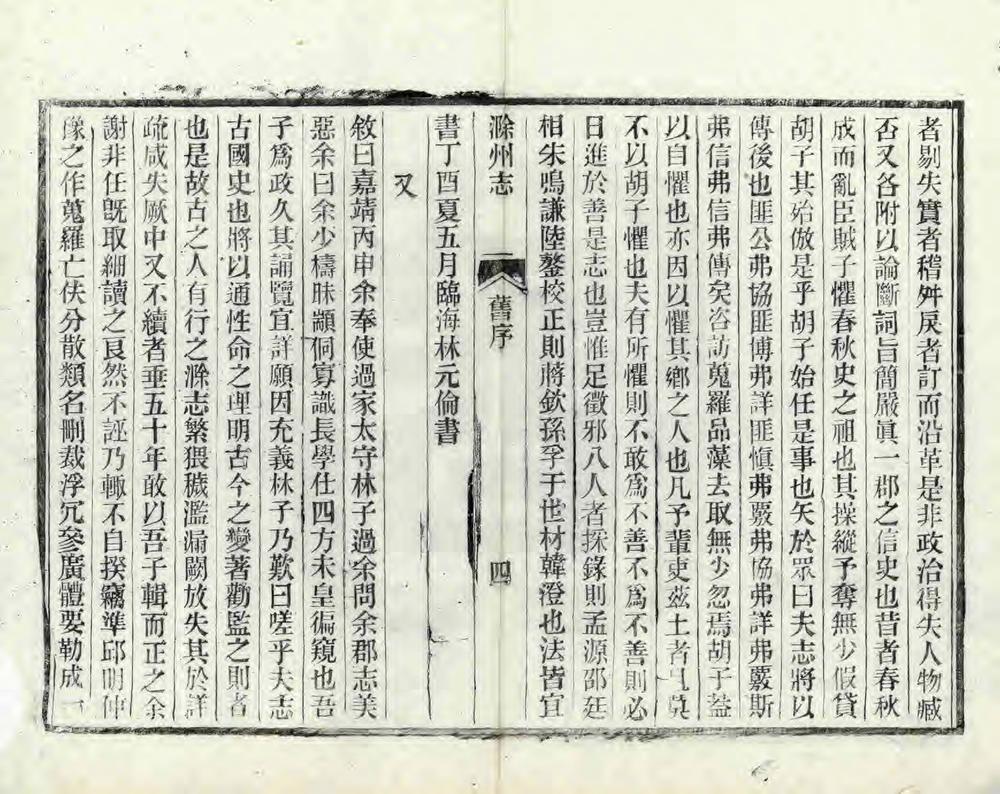 者剔失實者稽舛戾者訂而沿革是非政治得失人物臧
否又各附以論斷詞旨簡嚴眞一郡之信史也昔者春秋
成而亂臣賊子懼春秋史之祖也其操縱予奪無少假貸
胡子其殆倣是乎胡子始任是事也矢於眾曰夫志將以
傳後也匪公弗協匪傳弗詳匪愼弗覈弗協弗詳弗覈斯
弗信弗信弗傳矣咨訪蒐羅品藻去取無少忽焉胡子蓋
以自懼也亦因以懼其鄉之人也凡予輩吏茲土者且莫
不以胡子懼也夫有所懼則不敢爲不善不爲不善則必
日進於善是志也豈惟足徵邪八人者採錄則孟源邵廷
相朱鳴謙陸鏊校正則蔣欽孫孚于世材韓澄也法皆宜
滁州志
舊序
四
書丁酉夏五月臨海林元倫書
又
敘曰嘉靖丙申余奉使過家太守林子過余問余郡志美
惡余曰余少檮昧顓侗寡識長學仕四方未皇徧窺也吾
子爲政久其誦覽宜詳願因充義林子乃歎曰嗟乎夫志
古國史也將以通性命之理明古今之變著勸監之則者
也是故古之人有行之滁志繁猥穢濫漏闕放失其於詳
疏咸失厥中又不續者垂五十年敢以吾子輯而正之余
謝非任旣取細讀之良然不誣乃輙不自揆竊準邱明仲
豫之作蒐羅亡佚分散類名刪裁浮冗參廣體要勒成一